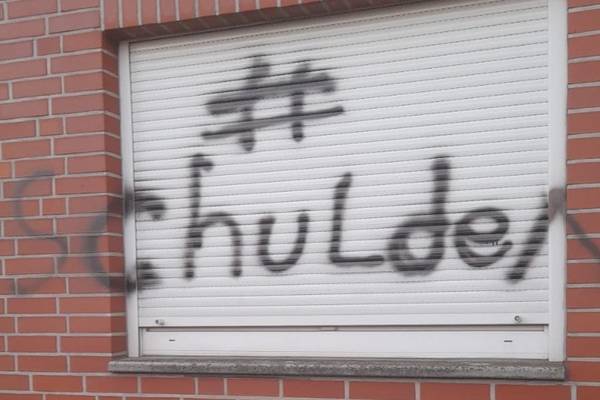 #
Schulden